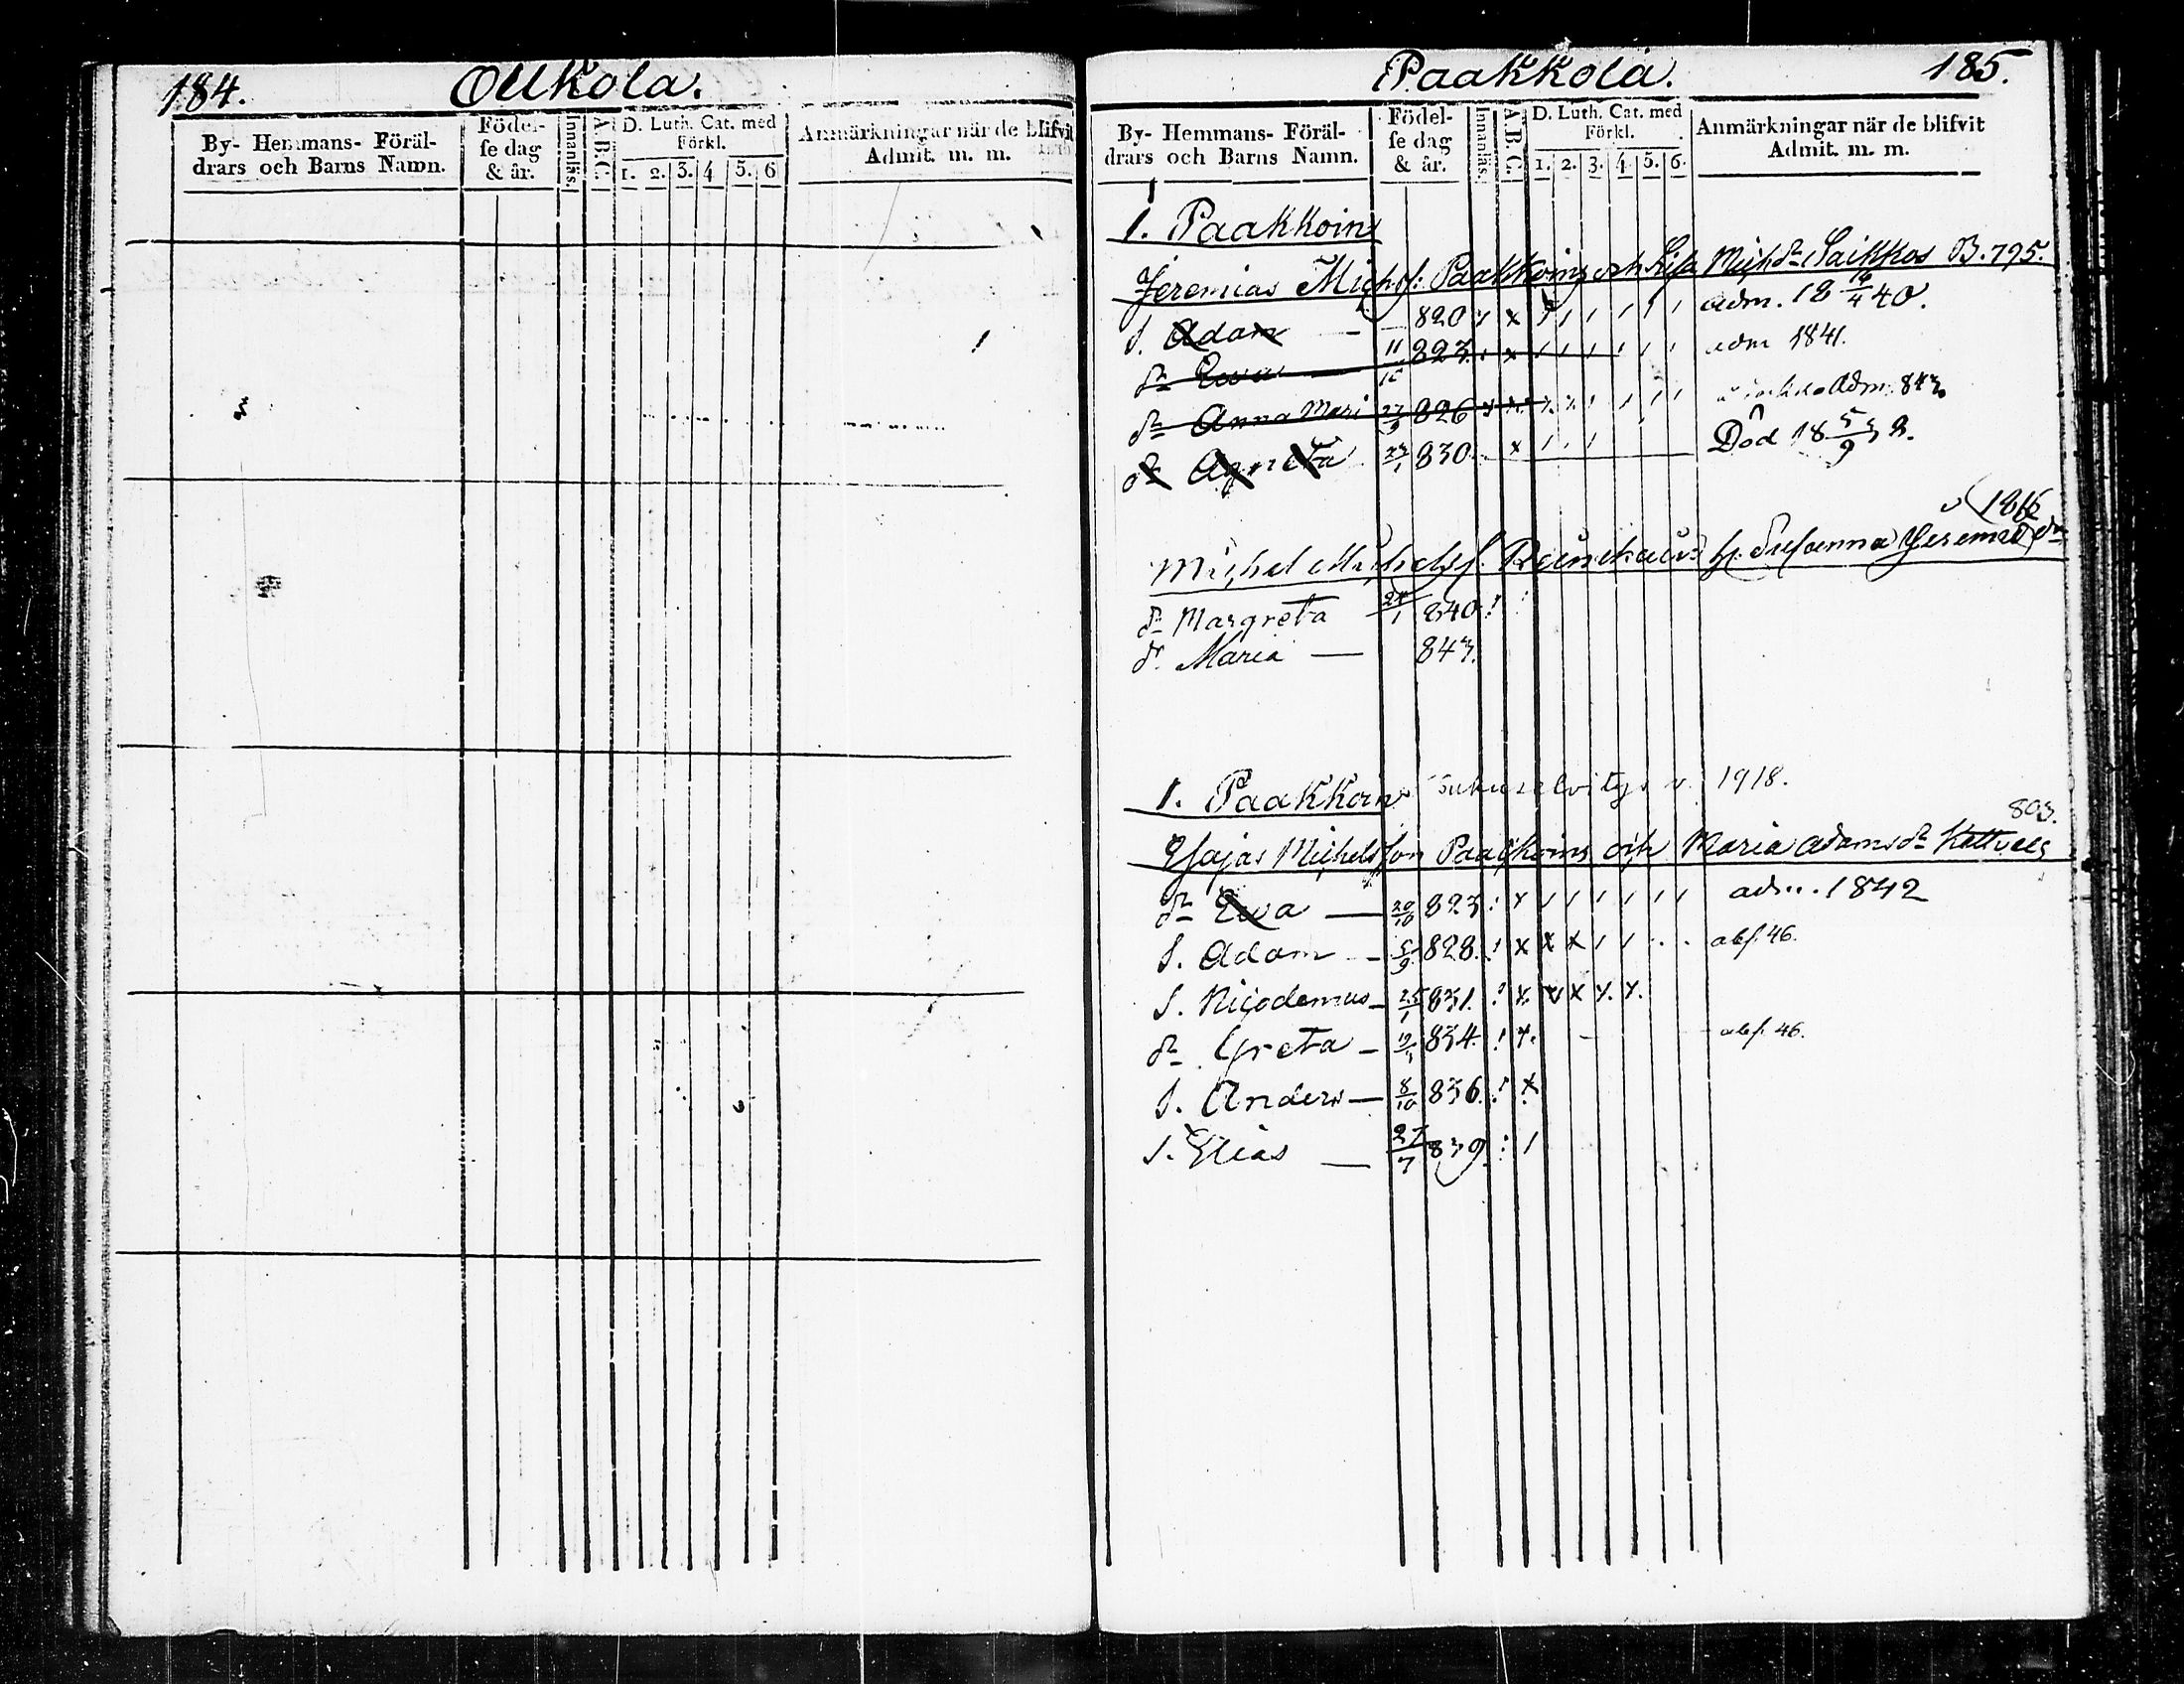 184. Ollkola.
By- Hemmans- Föräl-
drars och Barns Namn.
Födel-
se dag
& år.
Innanläs.
A.B.C.
D. Luth. Cat. med
Förkl.
1. 2. 3. 4 5. 6
Anmärkningar när de blifvit
Admit. m. m.
Paakkola. 185.
By- Hemmans- Föräl-
drars och Barns Namn.
Födel-
se dag
& år.
Innanläs.
A.B.C.
D. Luth. Cat. med
Förkl.
1. 2. 3. 4 5. 6.
Anmärkningar när de blifvit
Admit. m. m.
1. Paakkoins
Jeremias Michsf. Paakkoins och Lisa Michdr Saikkos B. 795.
S. Adam — 820 adm. 18 16/4 40.
dr Ewa — 11/10 823. adm 1841.
dr Anna Mari 27/9 826 Adm. 843
dr Agneta 27/1 830. Död 18 5/9 38.
1816
Michel Michelsf. h. Susanna Jeremiædr
dr Margreta 24/1 840
dr Maria — 843.
1. Paakkoins Sukuselvitys v. 1918.
803.
Esajas Michelsson Paakkoins och Maria Adamsdr
dr Ewa — 20/10 823 adm. 1842
S. Adam — 5/9 828. abs. 46.
S. Nicodemus — 25/1 831.
dr Greta — 834. abs. 46.
S. Anders — 8/10 836.
S. Elias — 27/7 839